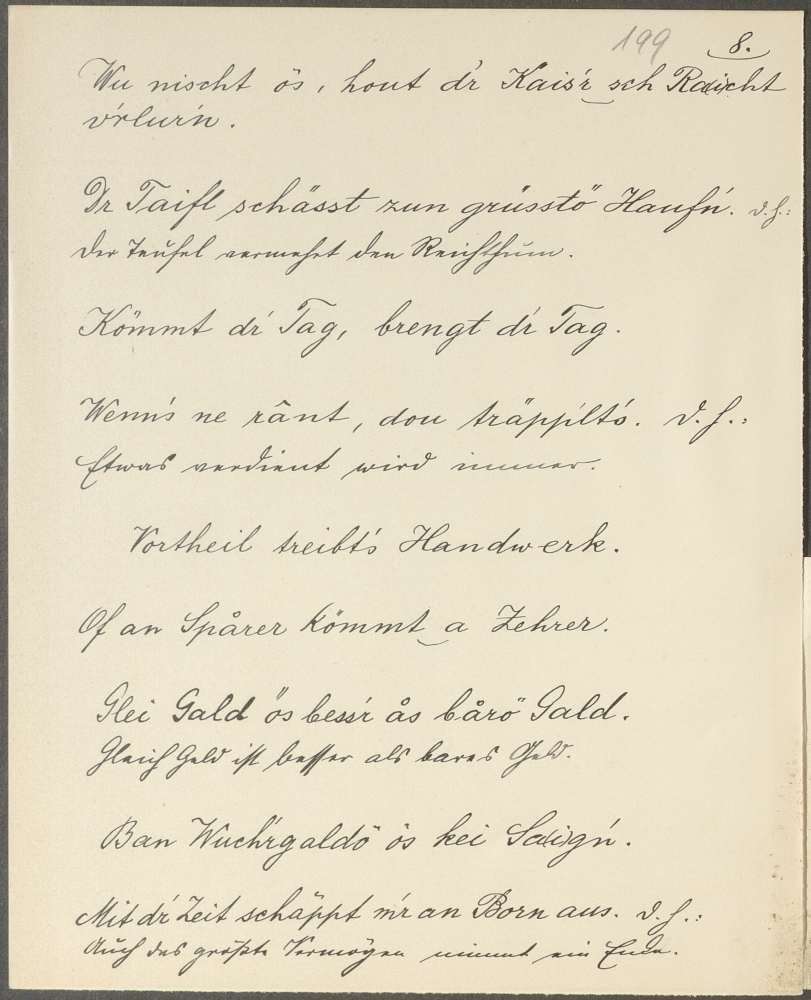 199 8.
Wu nischt ös, hout dr' Kais'r sch Ra(i)cht
v'rlur'n.
Dr Taifl schässt zun grüsstö Haufn'. d. h.:
Der Teufel vermehrt den Reichthum.
Kömmt dr' Tag, brengt dr' Tag.
Wenn's ne rânt, dou träppilt's. d. h.:
Etwas verdient wird immer.
Vortheil treibt's Handwerk.
Of an Spårer kömmt a Zehrer.
Glei Gald ös bess'r ås bårö Gald.
Gleich Geld ist besser als bares Geld.
Ban Wuch'rgaldö ös kei Sa(i)g'n.
Mit dr' Zeit schäppt m'r an Born aus. d. h.:
Auch das größte Vermögen nimmt ein Ende.